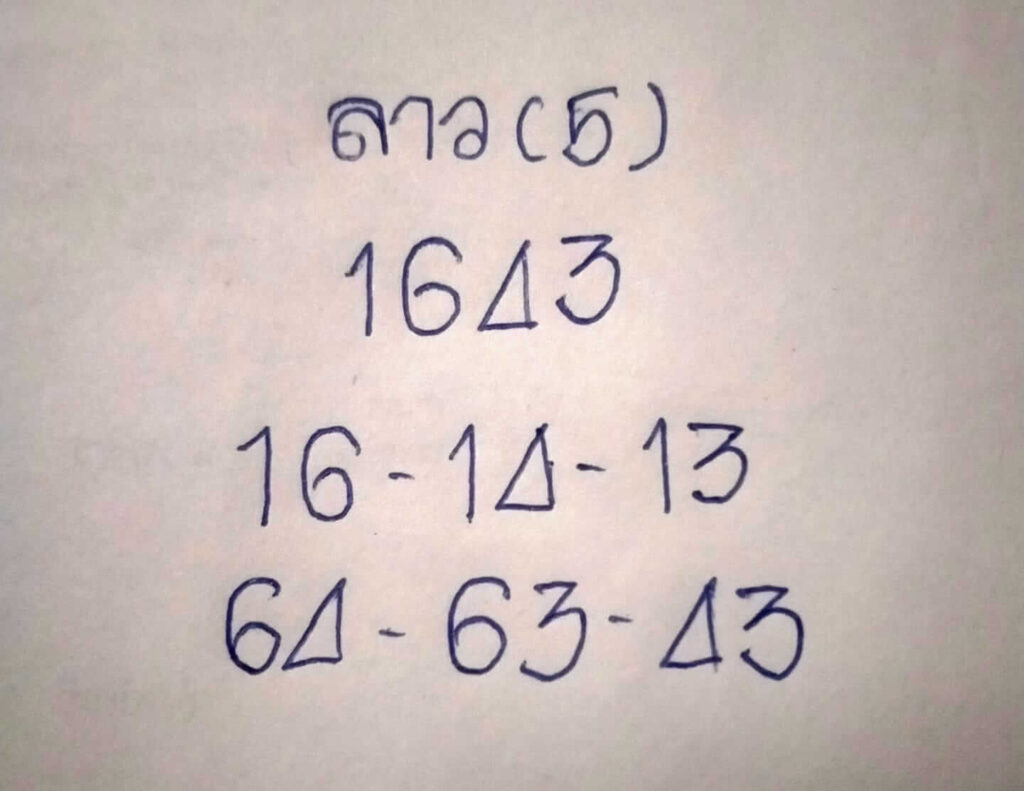 ลาว (5)
1643
16 - 14 - 13
64 - 63 - 43